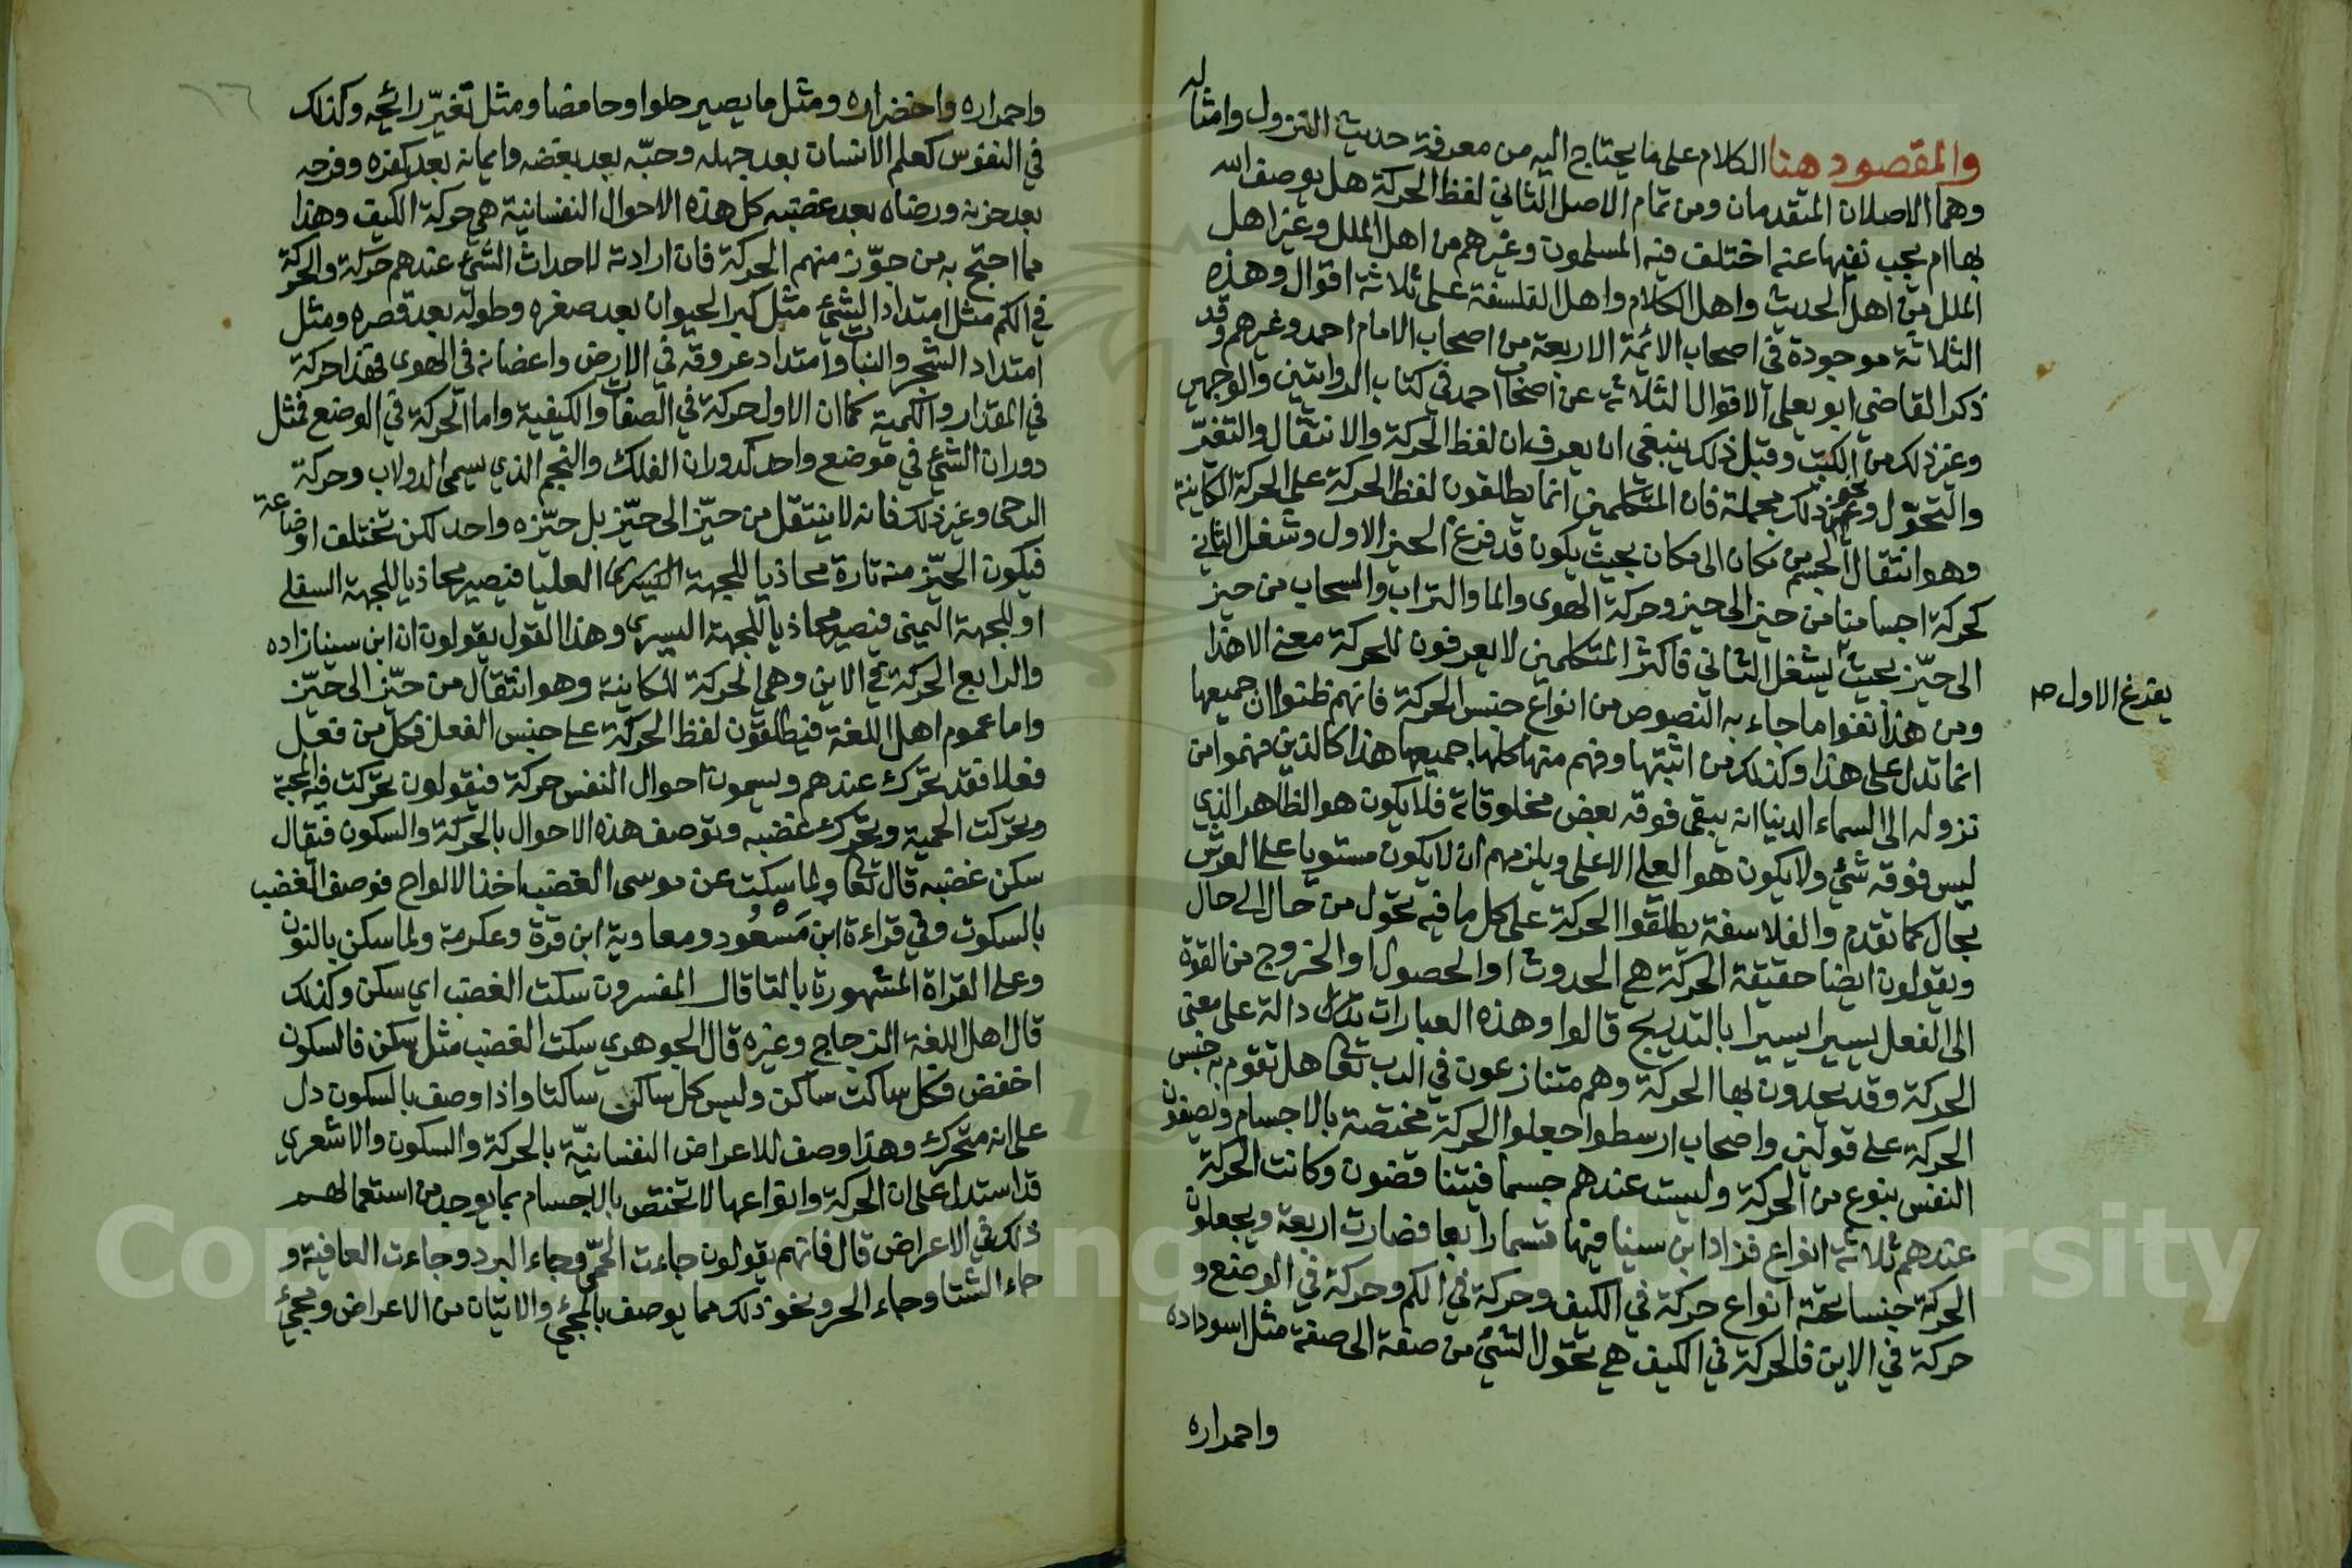 والمقصود هنا الكلام على ما يحتاج اليه من معرفة حديث النزول وامثاله
وهما الاصلان المتقدمان ومن تمام الاصل الثاني لفظ الحركة هل يوصف الله
بها ام يجب نفيها عنه اختلف فيه المسلمون وغيرهم من اهل الملل وغير اهل
الملل من اهل الحديث واهل الكلام واهل الفلسفة على ثلاثة اقوال وهذه
الثلاثة موجودة في اصحاب الائمة الاربعة من اصحاب الامام احمد وغيرهم وقد
ذكر القاضي ابو يعلى الاقوال الثلاثة عن اصحاب احمد في كتاب الروايتين والوجهين
وغير ذلك من الكتب وقبل ذلك ينبغي ان يعرف ان لفظ الحركة والانتقال والتغير
والتحول ونحو ذلك مجملة فان المتكلمين انما يطلقون لفظ الحركة على الحركة المكانية
وهو انتقال الجسم من مكان الى مكان بحيث يكون قد فرغ الحيز الاول وشغل الثاني
كحركة اجسامنا من حيز الى حيز وحركة الهوى والما والتراب والسحاب من حيز
الى حيّز بحيث يشغل الثاني فاكثر المتكلمين لا يعرفون للحركة معنى الا هذا
يفرغ الاول صح
ومن هذا نفوا ما جاء به النصوص من انواع جنس الحركة فانهم ظنوا ان جميعها
انما تدل على هذا وكذلك من اثبتها وفهم منها كلها جميعها هذا كالذين فهموا من
نزوله الى السماء الدنيا انه يبقى فوقه بعض مخلوقاته فلا يكون هو الظاهر الذي
ليس فوقه شيء ولا يكون هو العلي الاعلى ويلزمهم ان لا يكون مستويا على العرش
بحال كما تقدم والفلاسفة يطلقوا الحركة على كل ما فيه تحول من حال الى حال
ويقولون ايضا حقيقة الحركة هي الحدوث او الحصول او الخروج من القوة
الى الفعل يسيرا يسيرا بالتدريج قالوا وهذه العبارات دالة على معنى
الحركة وقد يحدون بها الحركة وهم متنازعون في الرب تعا هل تقوم به جنس
الحركة على قولين واصحاب ارسطوا جعلوا الحركة مختصة بالاجسام ويصفون
النفس بنوع من الحركة وليست عندهم جسما فيتناقضون وكانت الحركة
عندهم ثلاثة انواع فزاد ابن سينا فيها قسما رابعا فصارت اربعة ويجعلون
الحركة جنسا تحته انواع حركة في الكيف وحركة في الكم وحركة في الوضع و
حركة في الاين فالحركة في الكيف هي تحول الشيء من صفة الى صفة مثل اسوداده
واحمراره
١٦
واحمراره واخضراره ومثل ما يصير حلوا وحامضا ومثل تغيّر رائحته وكذلك
في النفوس كعلم الانسان بعد جهله وحبّه بعد بغضه وايمانه بعد كفره وفرحه
بعد حزنه ورضاه بعد غضبه كل هذه الاحوال النفسانية هي حركة الكيف وهذا
مما احتج به من جوّز منهم الحركة فان ارادته لاحداث الشيء عندهم حركة والحركة
في الكم مثل امتداد الشيء مثل كبر الحيوان بعد صغره وطوله بعد قصره ومثل
امتداد الشجر والنبات وامتداد عروقه في الارض واغصانه في الهوى فهذا حركة
في المقدار والكمية كما ان الاول حركة في الصفات والكيفية واما الحركة في الوضع فمثل
دوران الشيء في موضع واحد كدوران الفلك والنجم الذي يسمى الدولاب وحركة
الرحى وغير ذلك فانه لا ينتقل من حيّز الى حيّز بل حيّزه واحد لكن تختلف اوضاعه
فيكون الحيّز منه تارة محاذيا للجهة العليا فيصير محاذيا للجهة السفلى
او للجهة اليمنى فيصير محاذيا للجهة اليسرى وهذا القول يقولون ان ابن سينا زاده
والرابع الحركة في الاين وهي الحركة المكانية وهو انتقال من حيّز الى حيّز
واما عموم اهل اللغة فيطلقون لفظ الحركة على جنس الفعل فكل من فعل
فعلا فقد تحرك عندهم ويسمون احوال النفس حركة فيقولون تحركت فيه المحبة
وتحركت الحمية وتحرك غضبه وتوصف هذه الاحوال بالحركة والسكون فيقال
سكن غضبه قال تعا ولما سكت عن موسى الغضب اخذ الالواح فوصف الغضب
بالسكوت وفي قراءة ابن مسعُود ومعاوية ابن قرة وعكرمة ولما سكن بالنون
وعلى القراة المشهورة بالتا قال المفسرون سكت الغضب اي سكن وكذلك
قال اهل اللغة الزجاج وغيره قال الجوهري سكت الغضب مثل سكن فالسكون
اخفض فكل ساكت ساكن وليس كل ساكن ساكتا واذا وصف بالسكون دل
على انه متحرك وهذا وصف للاعراض النفسانيّة بالحركة والسكون والاشعري
قد استدل على ان الحركة وانواعها لا تختص بالاجسام بما يوجد من استعمالهم
ذلك في الاعراض قال فانهم يقولون جاءت الحمّى وجاء البرد وجاءت العافية و
جاء الشتا وجاء الحر ونحو ذلك مما يوصف بالمجيء والاتيان من الاعراض ومجيء